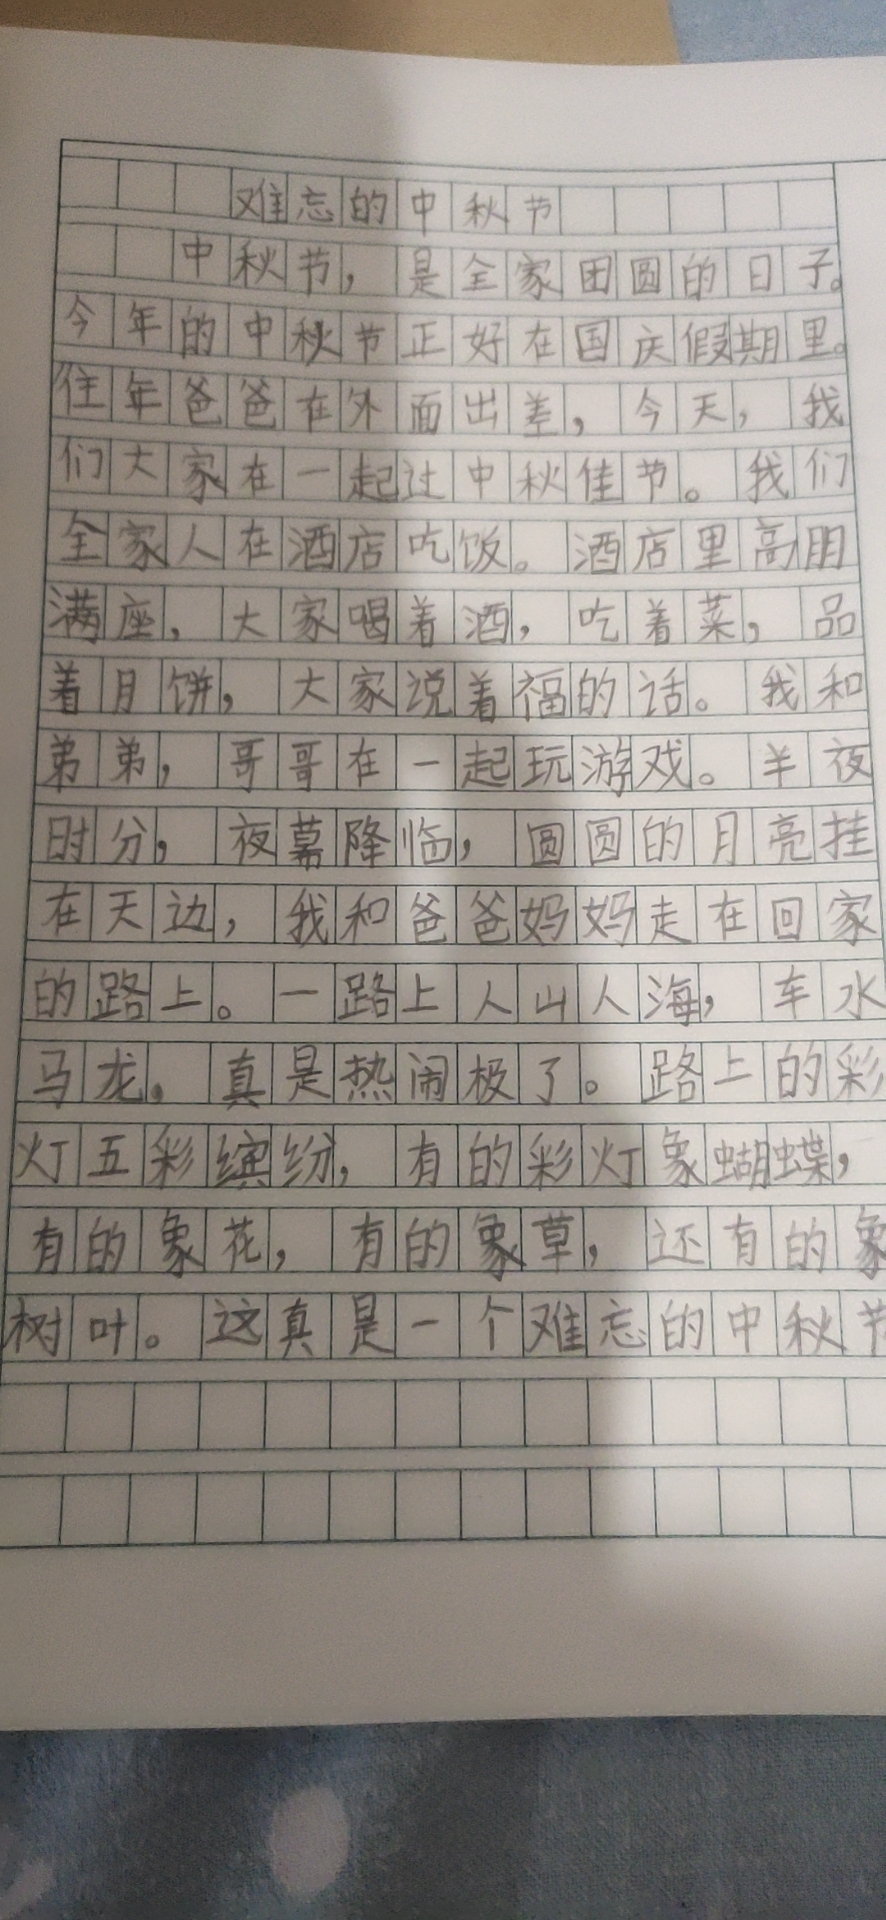 难忘的中秋节
中秋节，是全家团圆的日子。
今年的中秋节正好在国庆假期里。
往年爸爸在外面出差，今天，我
们大家在一起过中秋佳节。我们
全家人在酒店吃饭。酒店里高朋
满座，大家喝着酒，吃着菜，品
着月饼，大家说着福的话。我和
弟弟，哥哥在一起玩游戏。半夜
时分，夜幕降临，圆圆的月亮挂
在天边，我和爸爸妈妈走在回家
的路上。一路上人山人海，车水
马龙，真是热闹极了。路上的彩
灯五彩缤纷，有的彩灯象蝴蝶，
有的象花，有的象草，还有的象
树叶。这真是一个难忘的中秋节